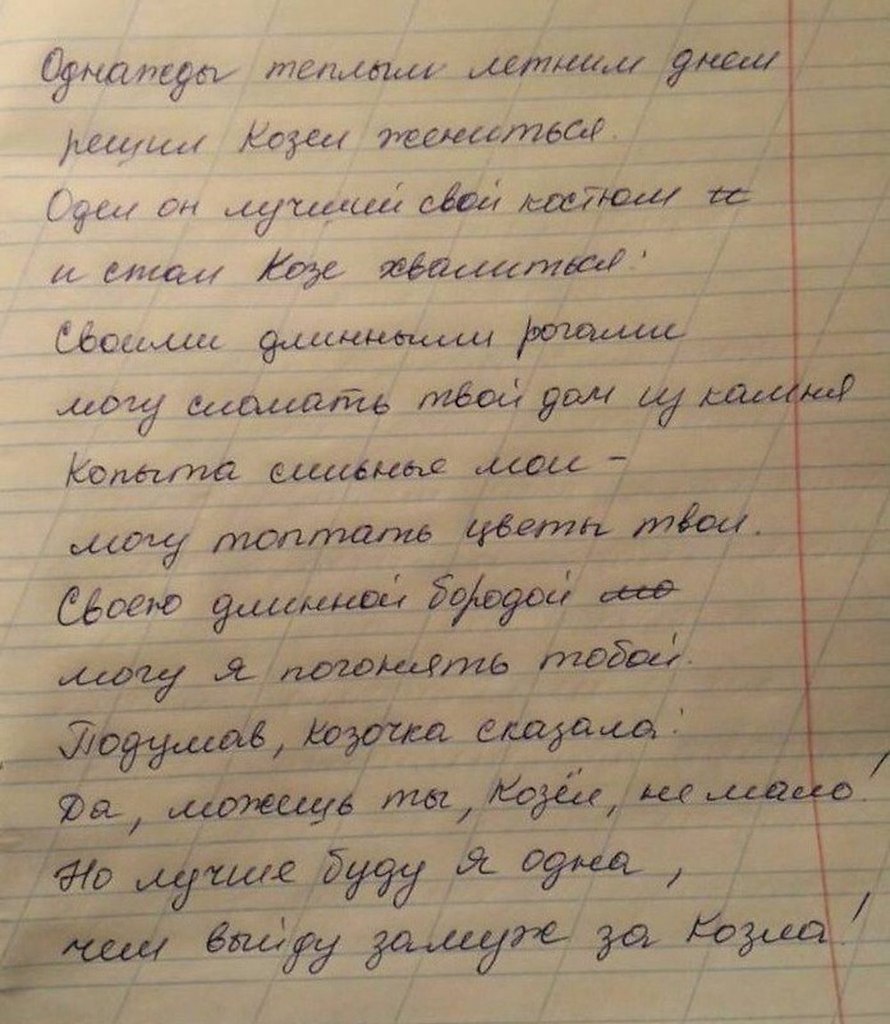 Однажды теплым летним днем
решил Козел жениться.
Одел он лучший свой костюм и
и стал Козе хвалиться:
Своими длинными рогами
могу сломать твой дом из камня
Копыта сильные мои –
могу топтать цветы твои.
Своею длинной бородой мо
могу я погонять тобой.
Подумав, козочка сказала:
Да, можешь ты, Козёл, не мало!
Но лучше буду я одна,
чем выйду замуж за Козла!